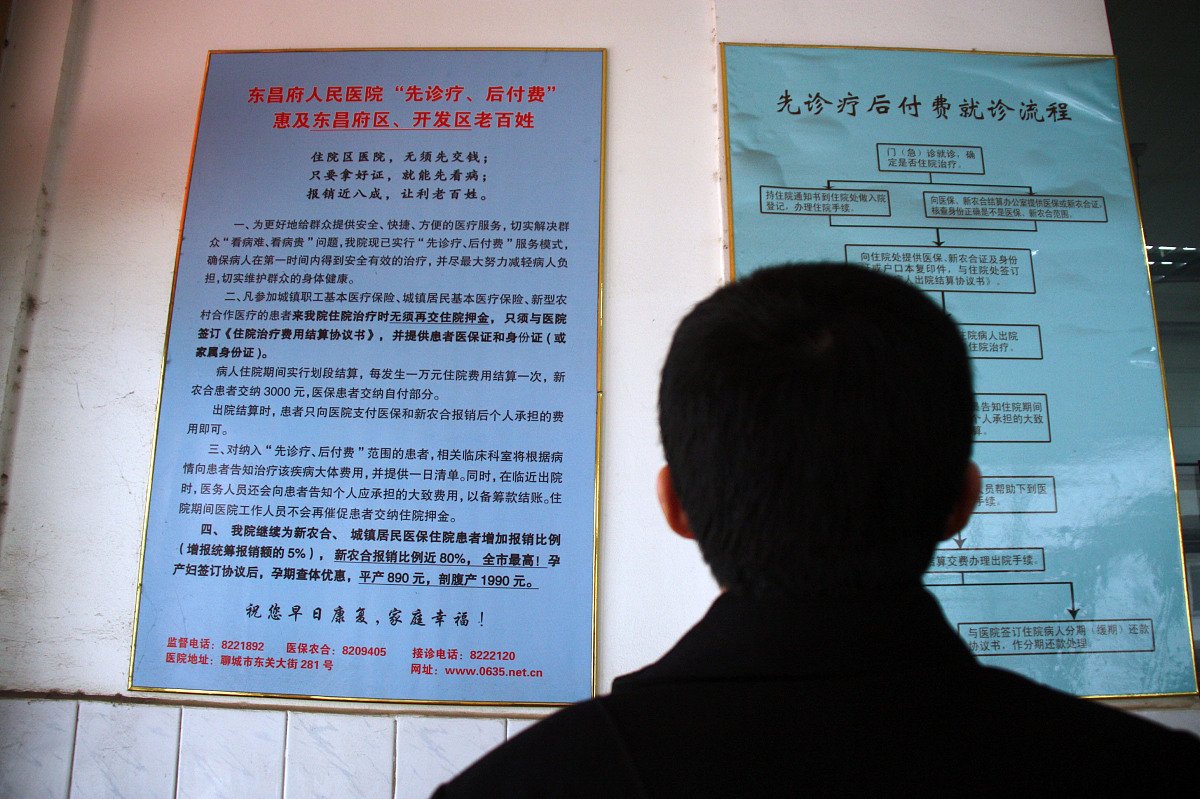 东昌府人民医院“先诊疗、后付费”
惠及东昌府区、开发区老百姓
住院区医院，无须先交钱；
只要拿好证，就能先看病；
报销近八成，让利老百姓。
一、为更好地给群众提供安全、快捷、方便的医疗服务，切实解决群
众“看病难、看病贵”问题，我院现已实行“先诊疗、后付费”服务模式，
确保病人在第一时间内得到安全有效的治疗，并尽最大努力减轻病人负
担，切实维护群众的身体健康。
二、凡参加城镇职工基本医疗保险、城镇居民基本医疗保险、新型农
村合作医疗的患者来我院住院治疗时无须再交住院押金，只须与医院
签订《住院治疗费用结算协议书》，并提供患者医保证和身份证（或
家属身份证）。
病人住院期间实行划段结算，每发生一万元住院费用结算一次，新
农合患者交纳3000元，医保患者交纳自付部分。
出院结算时，患者只向医院支付医保和新农合报销后个人承担的费
用即可。
三、对纳入“先诊疗、后付费”范围的患者，相关临床科室将根据病
情向患者告知治疗该疾病大体费用，并提供一日清单。同时，在临近出院
时，医务人员还会向患者告知个人应承担的大致费用，以备筹款结账。住
院期间医院工作人员不会再催促患者交纳住院押金。
四、我院继续为新农合、城镇居民医保住院患者增加报销比例
（增报统筹报销额的5%），新农合报销比例近80%，全市最高！孕
产妇签订协议后，孕期查体优惠，平产890元，剖腹产1990元。
祝您早日康复，家庭幸福！
监督电话：8221892 医保农合：8209405 接诊电话：8222120
医院地址：聊城市东关大街281号 网址：www.0635.net.cn
先诊疗后付费就诊流程
门（急）诊就诊，确
定是否住院治疗。
持住院通知书到住院处做入院
登记，办理住院手续。
向医保、新农合结算办公室提供医保或新农合证，
核查身份正确是不是医保、新农合范围。
向住院处提供医保、新农合证及身份
证或户口本复印件，与住院处签订
人出院结算协议书》。
住院病人出院
住院治疗。
告知住院期间
个人承担的大致
算。
员帮助下到医
手续。
结算交费办理出院手续。
与医院签订住院病人分期（缓期）还款
协议书，作分期还款处理。